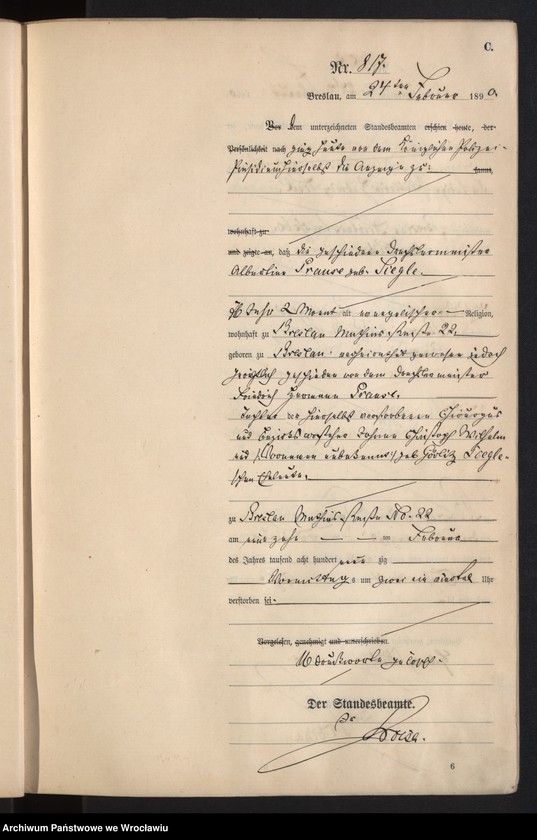 C.
Nr. 817.
Breslau, am 24ten Februar 1890
Vor dem unterzeichneten Standesbeamten erschien heute, der
Persönlichkeit nach ging heute von dem Königlichen Polizei-
Präsidium hierselbst die Anzeige zu: kannt,
wohnhaft zu
und zeigte an, daß die geschiedene Drechslermeister
Albertine Prause geb. Siegle
2 Monat alt evangelischer Religion,
wohnhaft zu Breslau Mathiasstraße 22.
geboren zu Breslau verheirathet gewesen jedoch
gerichtlich geschieden von dem Drechslermeister
Friedrich Hermann Prause.
Tochter der hierselbst verstorbenen
und Bezirksvorsteher Johann Christoph Wilhelm
und (Vornamen unbekannt) geb. Görlitz Siegle-
schen Eheleute.
zu Breslau Mathiasstraße No. 22
am im Februar
des Jahres tausend acht hundert neunzig
Vormittags um zwei ein viertel Uhr
verstorben sei.
Vorgelesen, genehmigt und unterschrieben.
Druckworte gelöscht.
Der Standesbeamte.
6
Archiwum Państwowe we Wrocławiu